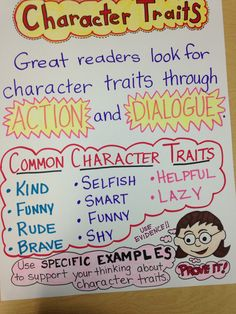 Character Traits
Great readers look for
character traits through
ACTION and DIALOGUE.
COMMON CHARACTER TRAITS
• KIND
• FUNNY
• RUDE
• BRAVE
• SELFISH
• SMART
• FUNNY
• SHY
• HELPFUL
• LAZY
USE EVIDENCE!!
PROVE IT!
Use SPECIFIC EXAMPLES
to support your thinking about
character traits.